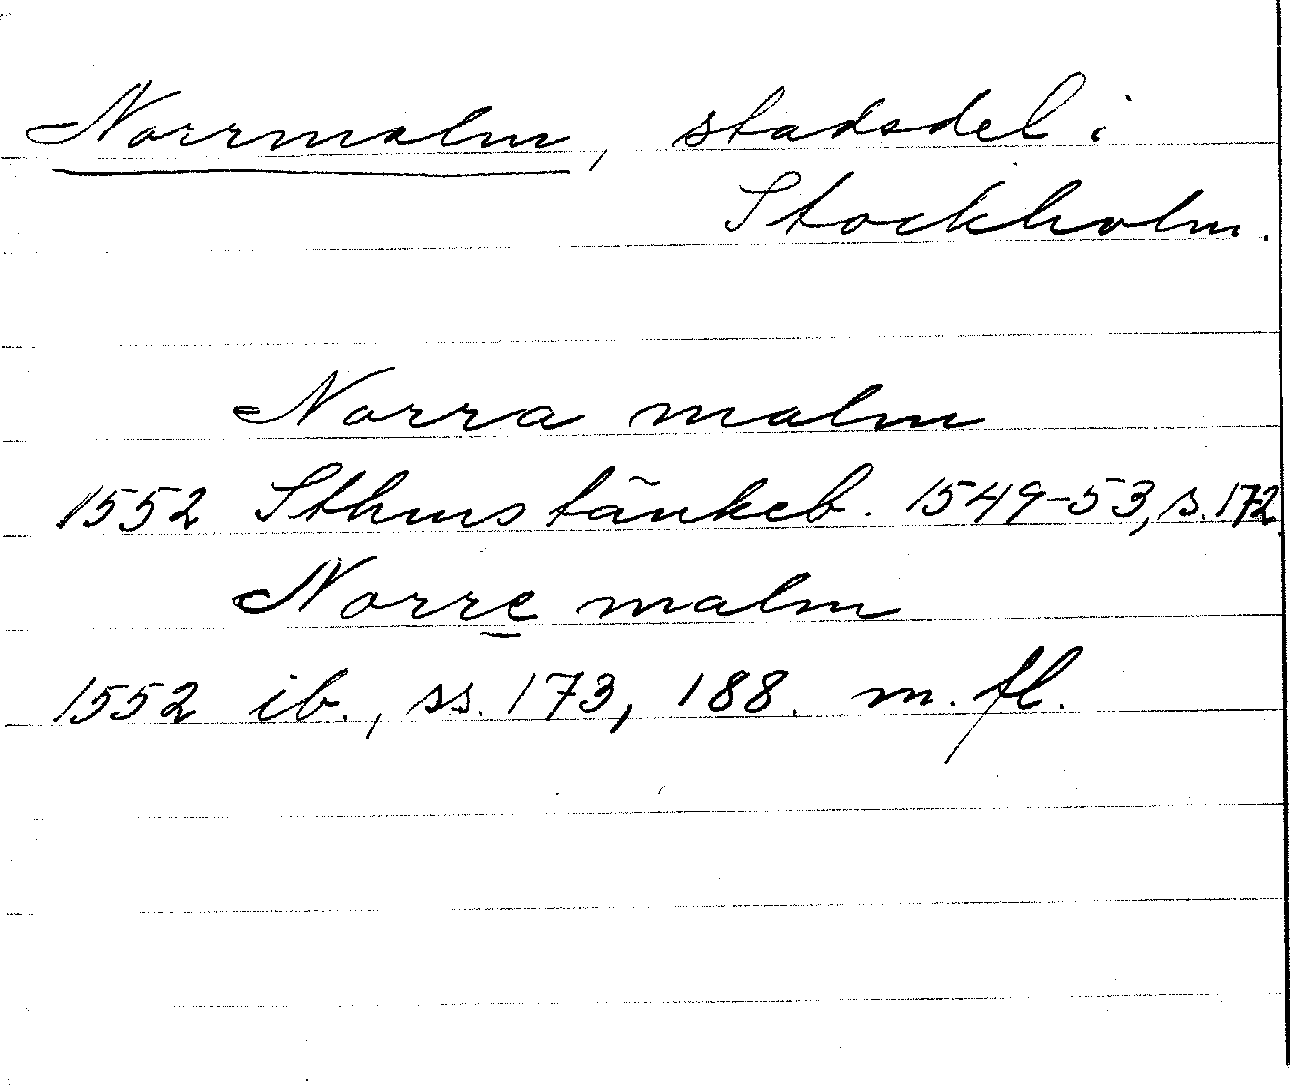 Norrmalm, stadsdel i
Stockholm.
Norra malm
1552 Sthms tänkeb. 1549-53, s. 172.
Norre malm
1552 ib., ss. 173, 188. m. fl.